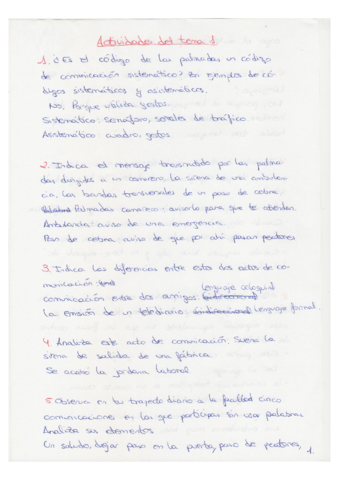 Actividades del tema 1
1. ¿Es el código de las palmadas un código
de comunicación sistemático? Da ejemplos de có-
digos sistemáticos y asistemáticos.
No. Porque utiliza gestos.
Sistemático: semáforo, señales de tráfico
Asistemático: cuadro, gestos.
2. Indica el mensaje transmitido por las palma-
das dirigidas a un camarero, la sirena de una ambulan-
cia, las bandas transversales de un paso de cebra.
Palmadas camarero: avisarlo para que te atiendan.
Ambulancia: aviso de una emergencia.
Paso de cebra: aviso de que por ahí pasan peatones
3. Indica las diferencias entre estos dos actos de co-
municación
Lenguaje coloquial
comunicación entre dos amigos: bidireccional
la emisión de un telediario: unidireccional Lenguaje formal.
4. Analiza este acto de comunicación. Suena la
sirena de salida de una fábrica.
Se acabó la jornada laboral
5. Observa en tu trayecto diario a la facultad cinco
comunicaciones en las que participes sin usar palabras.
Analiza sus elementos
Un saludo, dejar paso en la puerta, paso de peatones,
1.